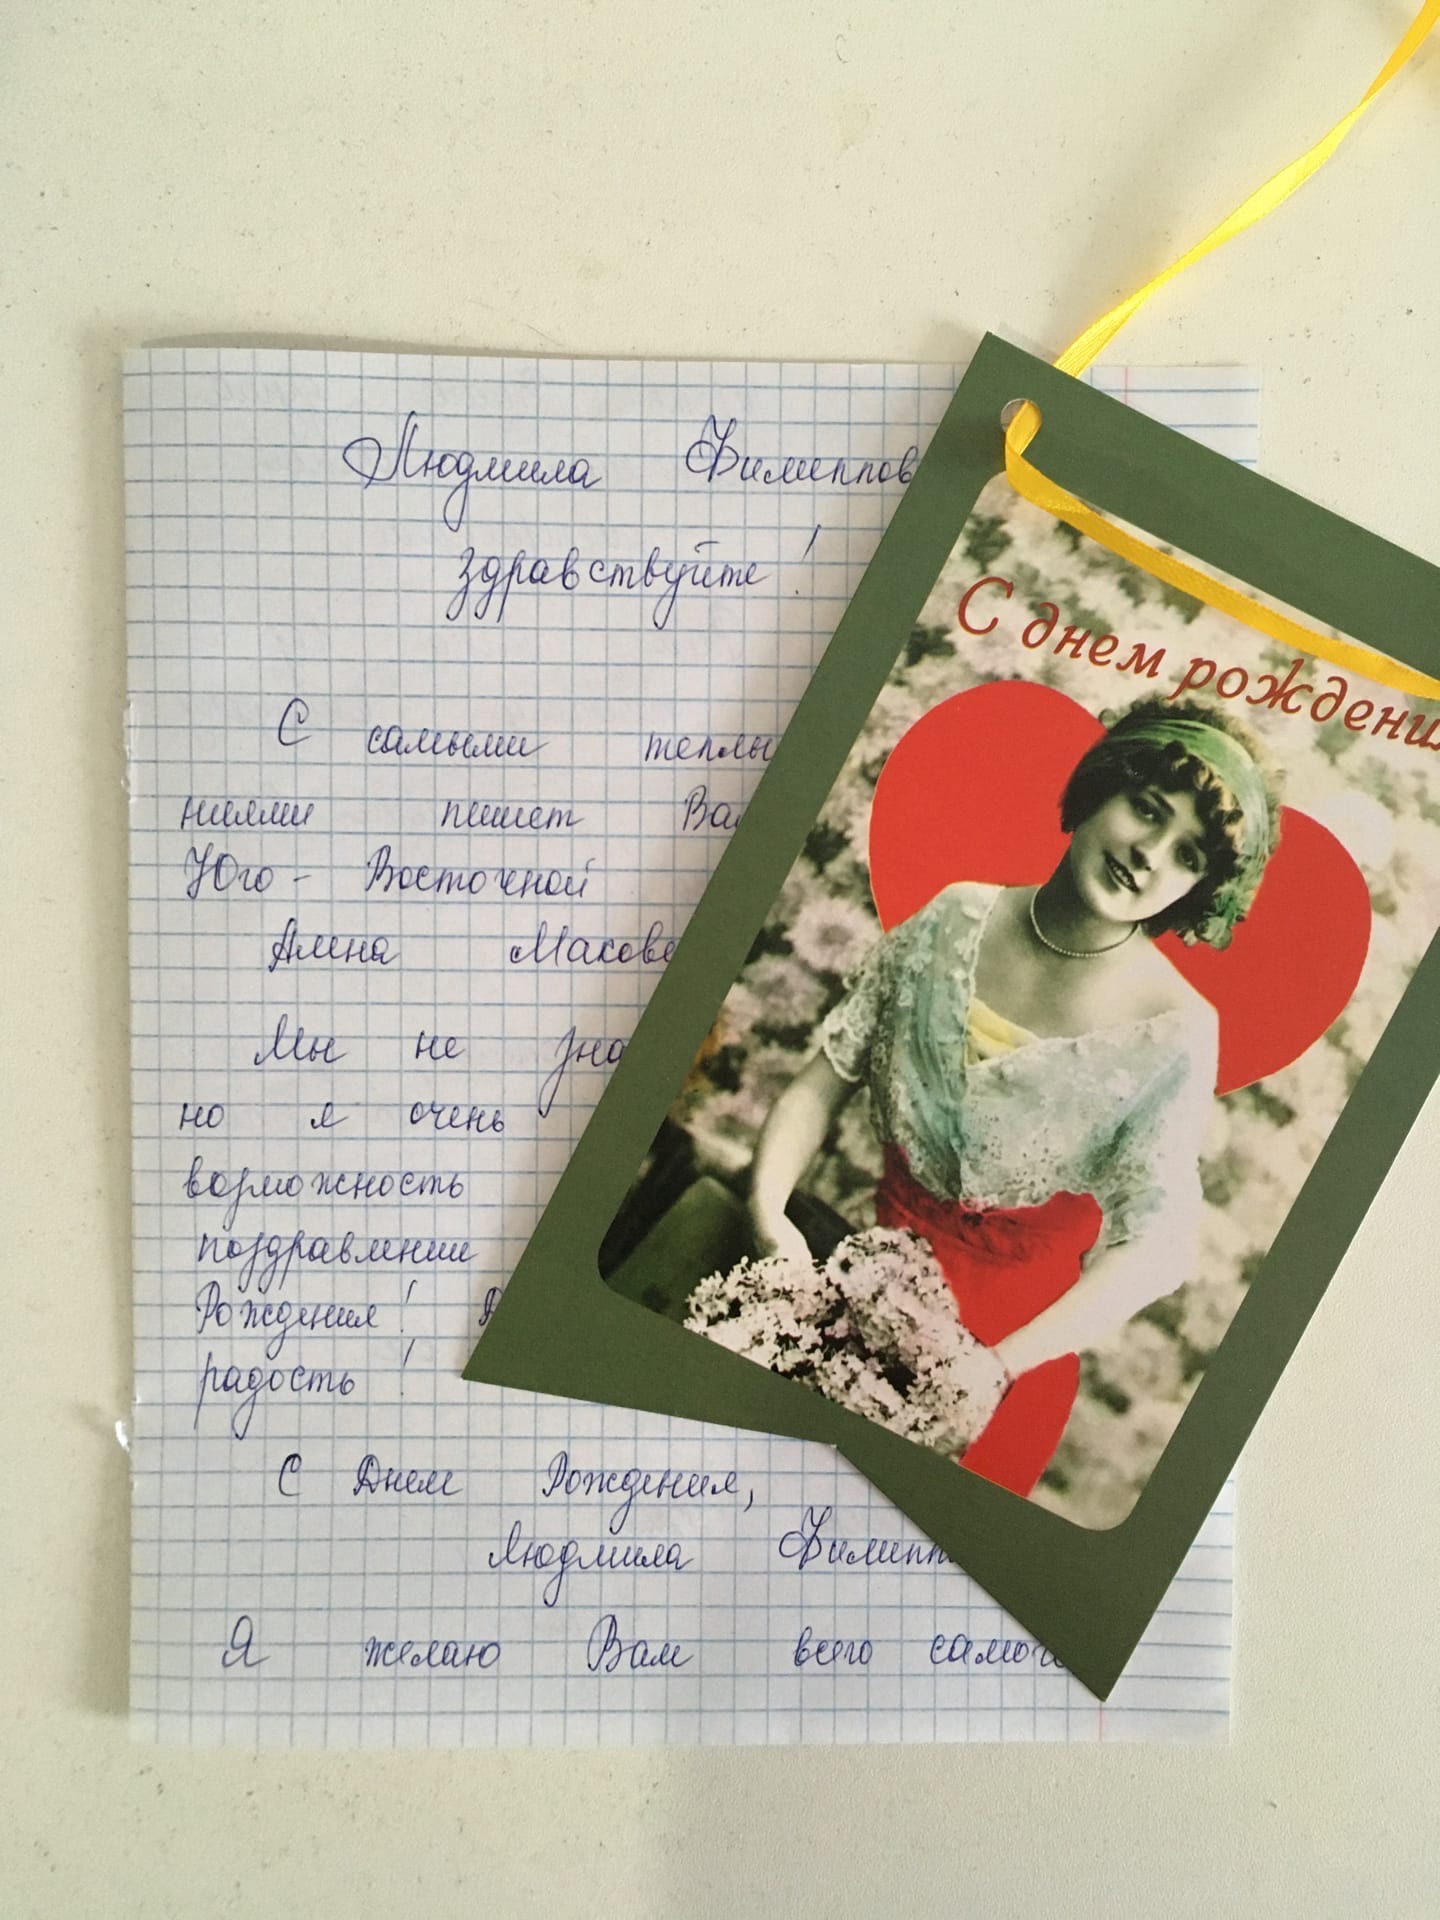 Людмила Филиппов
здравствуйте!
С самыми теплы
ниями пишет Ва
Юго-Восточной
Алина Макове
Мы не зна
но я очень
возможность
поздравлении
Рождения!
радость!
С Днем Рождения,
Людмила Филипп
Я желаю Вам всего самого
С днем рождения